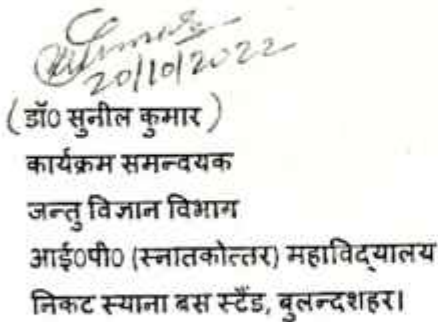 20/10/2022
(डॉ0 सुनील कुमार)
कार्यक्रम समन्वयक
जन्तु विज्ञान विभाग
आई0पी0 (स्नातकोत्तर) महाविद्यालय
निकट स्याना बस स्टैंड, बुलन्दशहर।